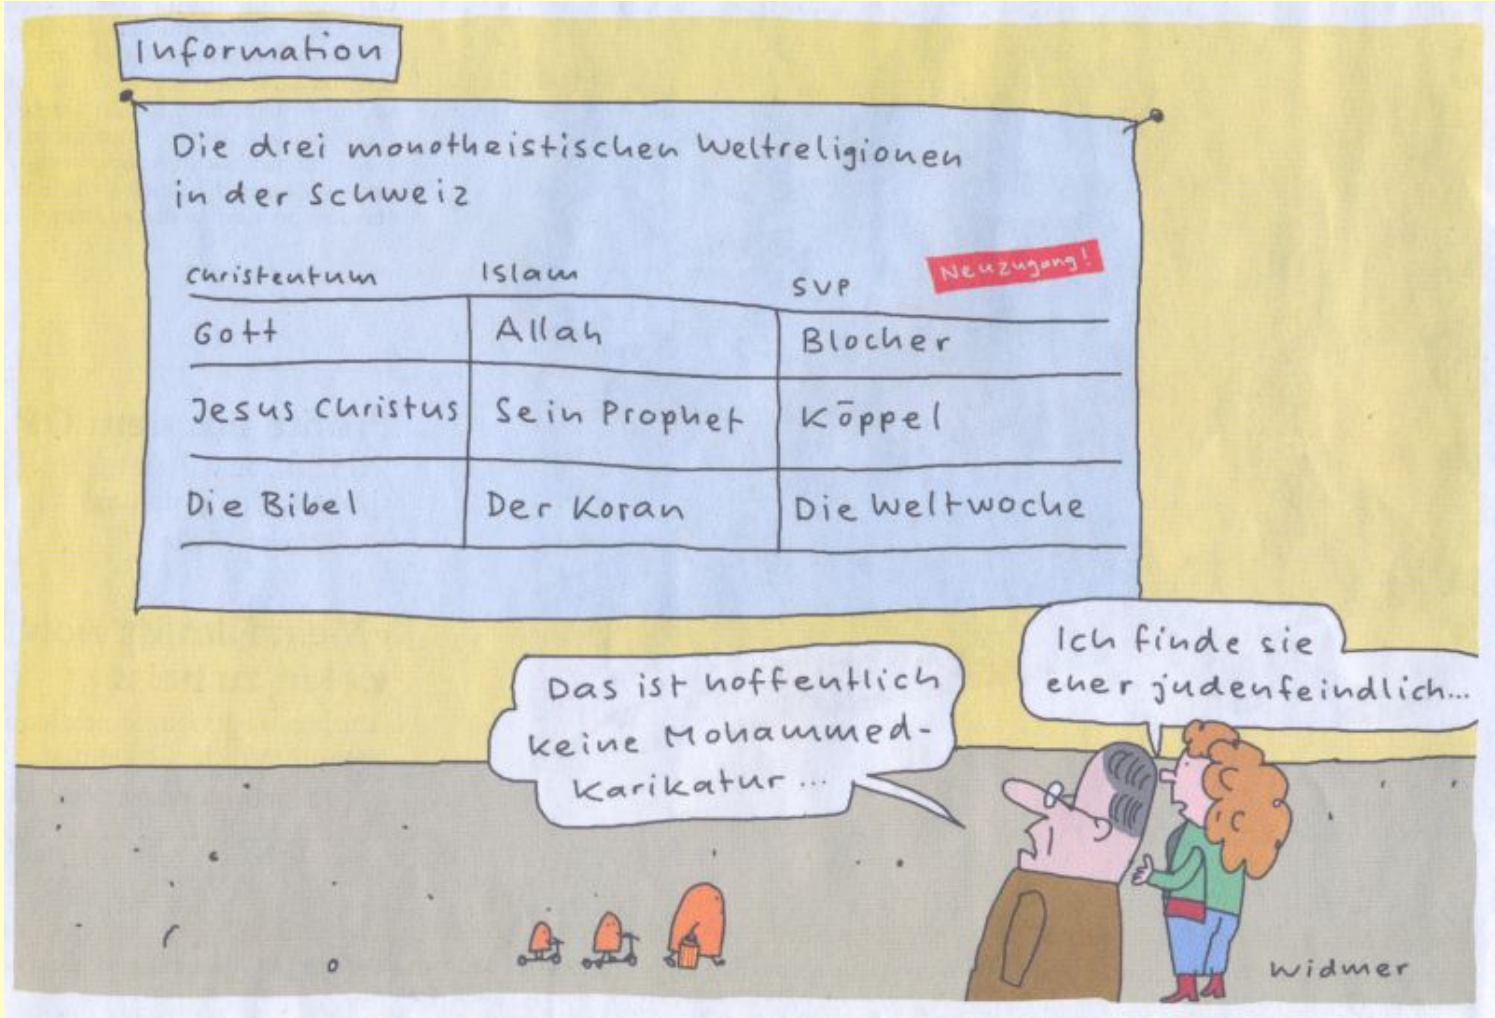 Information
Die drei monotheistischen Weltreligionen
in der Schweiz
Christentum Islam SVP Neuzugang!
Gott Allah Blocher
Jesus Christus Sein Prophet Köppel
Die Bibel Der Koran Die Weltwoche
Das ist hoffentlich
keine Mohammed-
Karikatur...
Ich finde sie
eher judenfeindlich...
Widmer